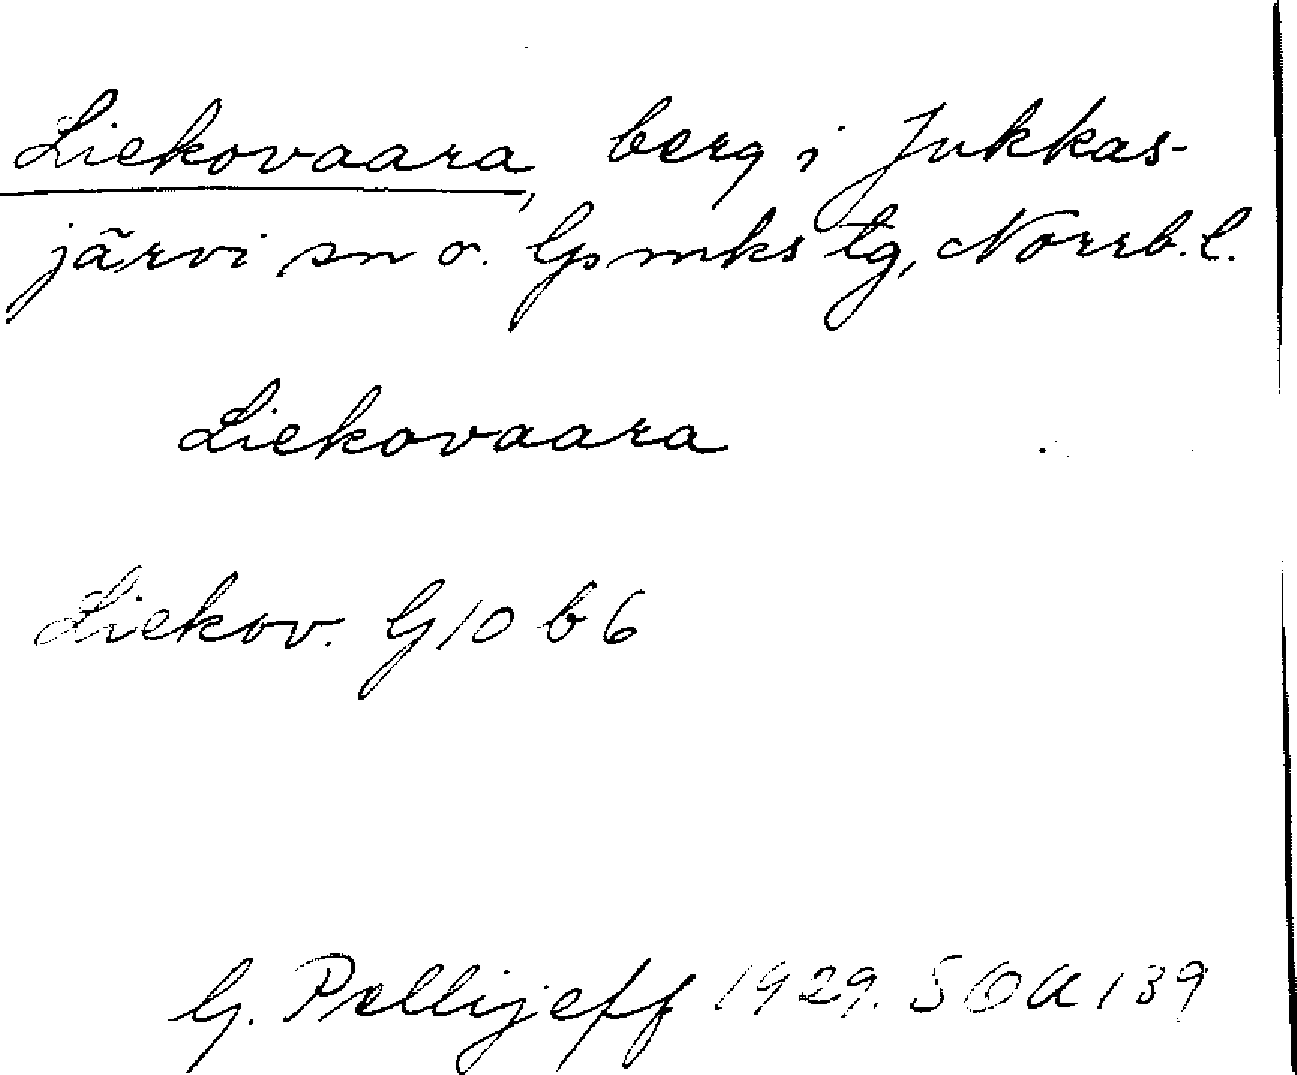 Liekovaara, berg i Jukkas-
järvi sn o. Gs mks tg, Norrb. l.
Liekovaara
Liekov. G 10 b 6
G. Pellijeff 1929. SOA 139